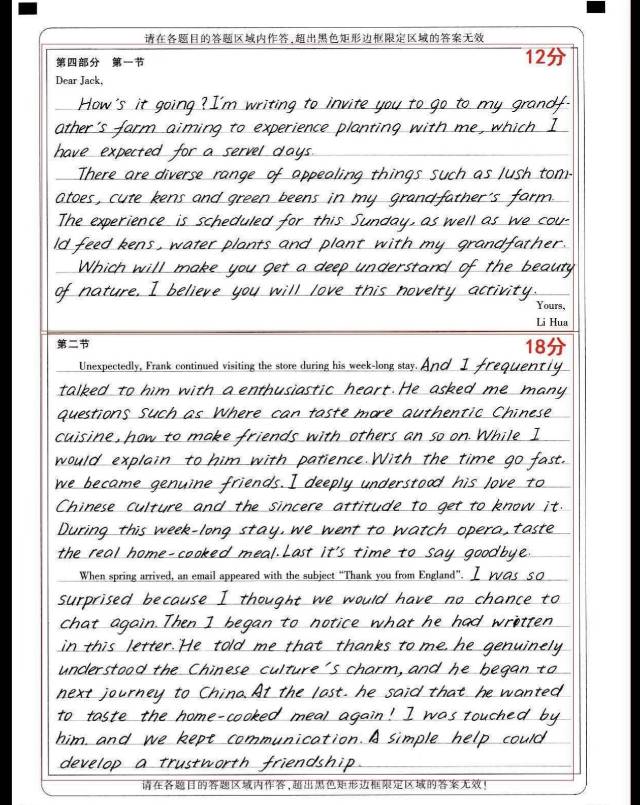 请在各题目的答题区域内作答,超出黑色矩形边框限定区域的答案无效
第四部分 第一节
12分
Dear Jack,
How's it going? I'm writing to invite you to go to my grandf-
ather's farm aiming to experience planting with me, which I
have expected for a servel days.
There are diverse range of appealing things such as lush tom-
atoes, cute kens and green beens in my grandfather's farm.
The experience is scheduled for this Sunday, as well as we cou-
ld feed kens, water plants and plant with my grandfather.
Which will make you get a deep understand of the beauty
of nature. I believe you will love this novelty activity.
Yours,
Li Hua
第二节
18分
Unexpectedly, Frank continued visiting the store during his week-long stay. And I frequently
talked to him with a enthusiastic heart. He asked me many
questions such as Where can taste more authentic Chinese
cuisine, how to make friends with others an so on. While I
would explain to him with patience. With the time go fast.
we became genuine friends. I deeply understood his love to
Chinese culture and the sincere attitude to get to know it.
During this week-long stay, we went to watch opera, taste
the real home-cooked meal. Last it's time to say goodbye.
When spring arrived, an email appeared with the subject "Thank you from England". I was so
surprised because I thought we would have no chance to
chat again. Then I began to notice what he had written
in this letter. He told me that thanks to me, he genuinely
understood the Chinese culture's charm, and he began to
next journey to China. At the last. he said that he wanted
to taste the home-cooked meal again! I was touched by
him. and we kept communication. A simple help could
develop a trustworth friendship.
请在各题目的答题区域内作答,超出黑色矩形边框限定区域的答案无效!